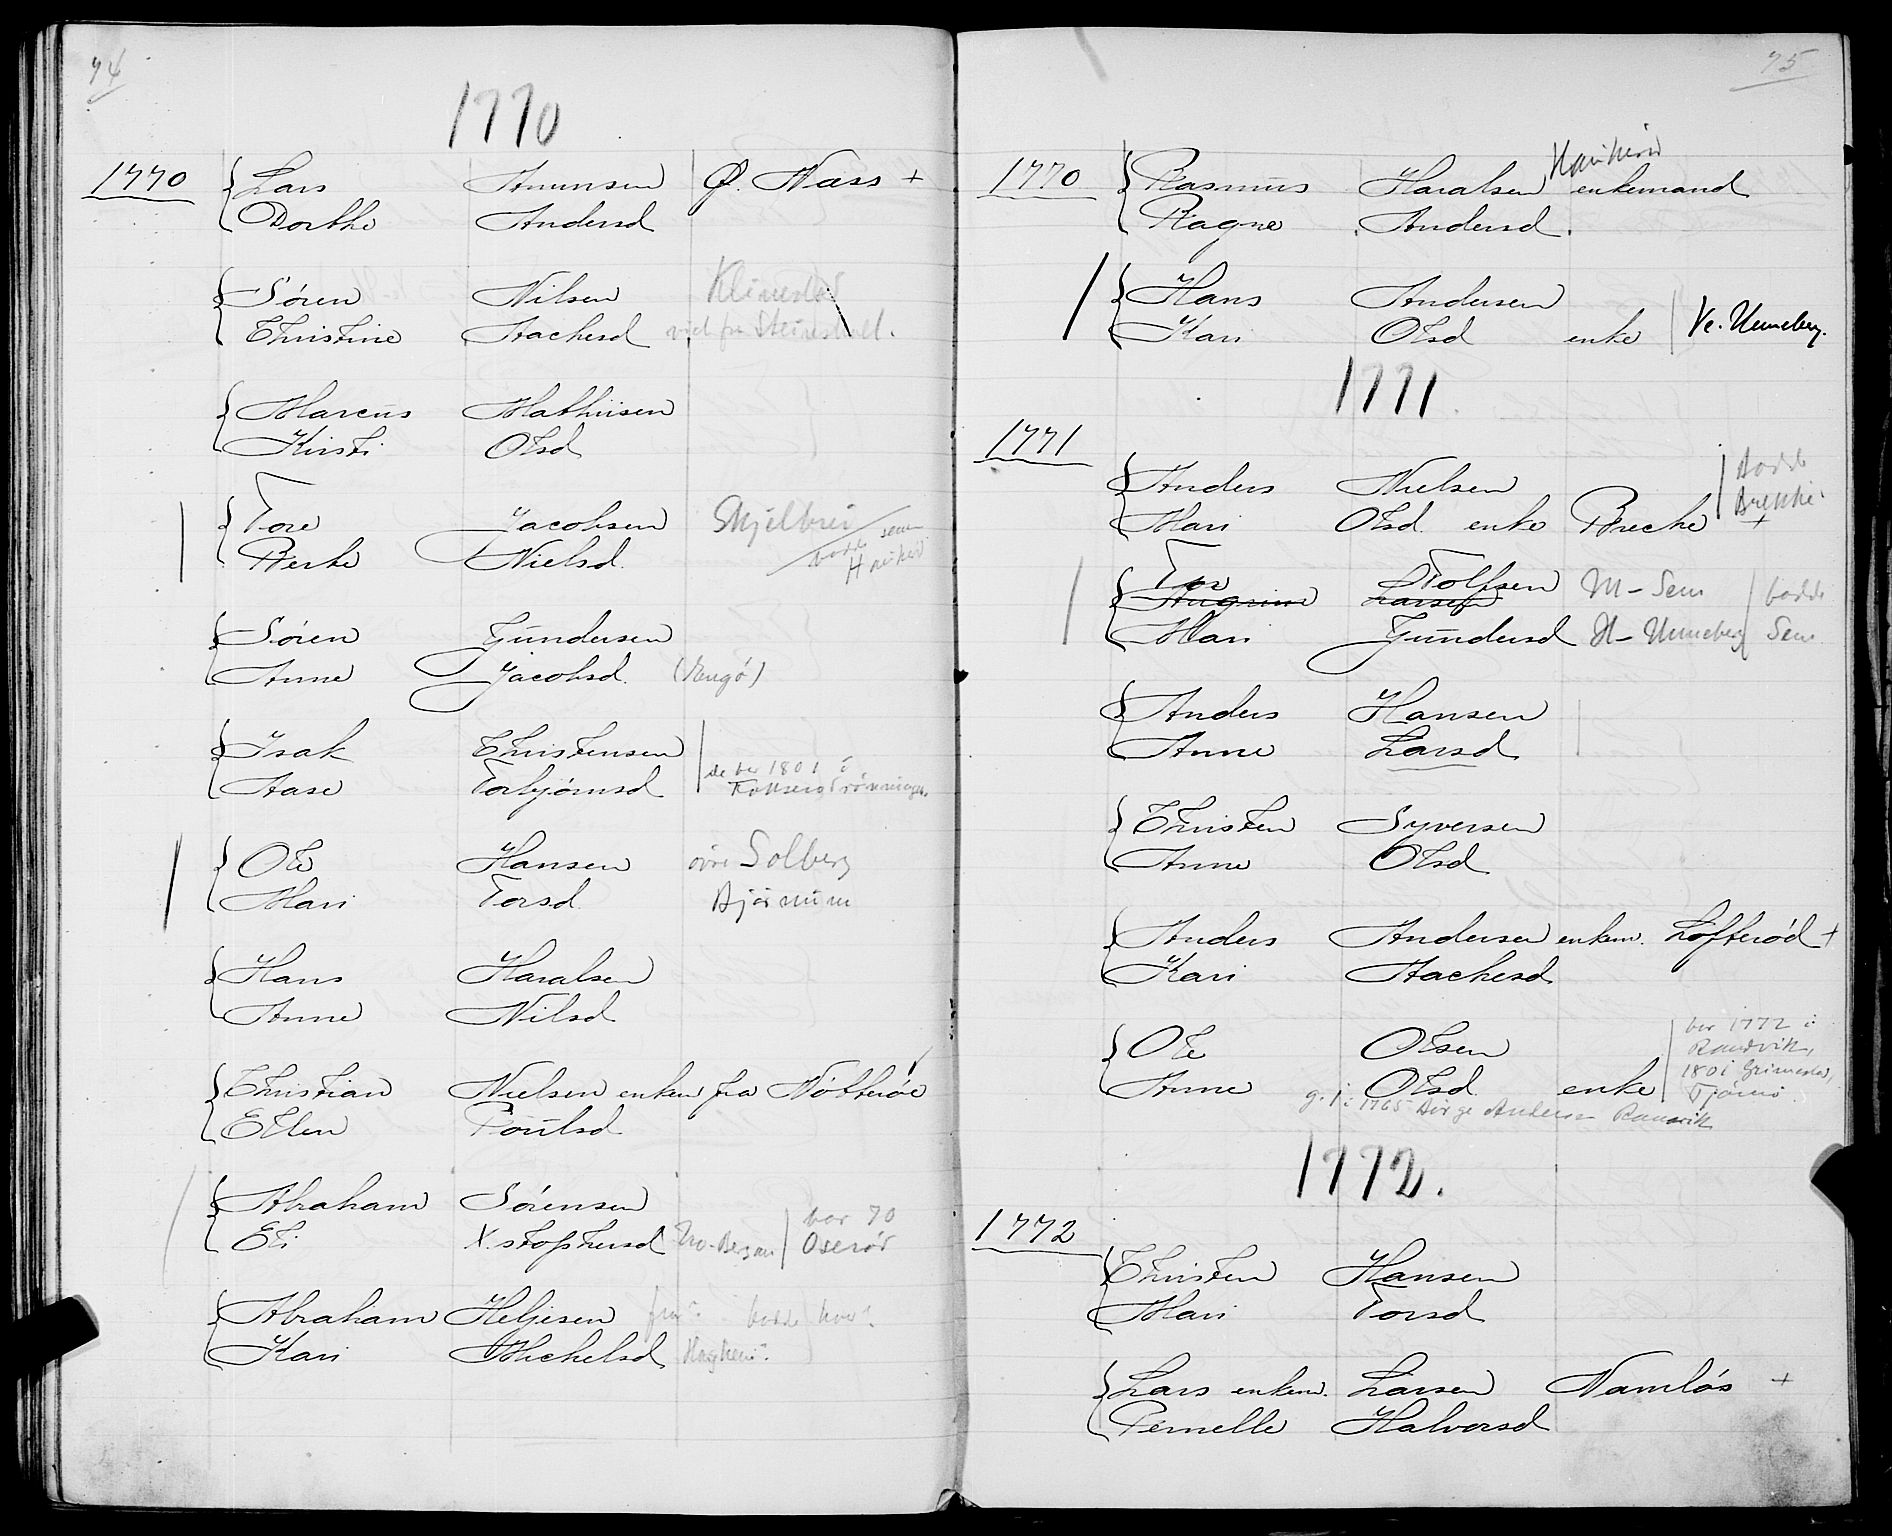 74
1770
1770 Lars Anunsen Ø. Næss +
Dorthe Andersd
Søren Nilsen Klinestad
Christine Aachesd
Marcus Mathiisen
Kirsti Olsd
Tore Jacobsen Skjelbrei
Berte Nielsd. bodde sem Haukerød
Søren Gundersen
Anne Jacobsd. (Vengø)
Isak Christensen
Aase Torbjørnsd de bor 1801 i
Ole Hansen øvre Solberg
Mari Torsd Bjørnum
Hans Haralsen
Anne Nilsd
Christian Nielsen enkem fra Nötterøe
Ellen Poulsd
Abraham Sørensen bor 70
Eli X.stophersd No-Bergan Oserød
Abraham Heljesen fra? bodde hvor?
Kari Michelsd
75
1770 Rasmus Haralsen Haukerød enkemand
Ragne Andersd.
Hans Andersen
Kari Olsd enke Ve. Unneberg.
1771.
1771
Anders Nielsen Bodde
Mari Olsd enke Breche Brekke +
Tor Rolfsen M-Sem bodde
Angrim Larsen
Mari Gundersd H-Unneberg Sem
Anders Hansen
Anne Larsd
Christen Syversen
Anne Olsd
Anders Andersen enkem. Løfterød +
Kari Aachesd
Ole Olsen bor 1772 i Ramdvik,
Anne Olsd enke 1801 Grimestad, Tjømø
g. 1: 1765 Børge Andersen Ramdvik
1772.
1772
Christen Hansen
Mari Torsd
Lars enkem. Larsen Namløs +
Pernelle Halvorsd